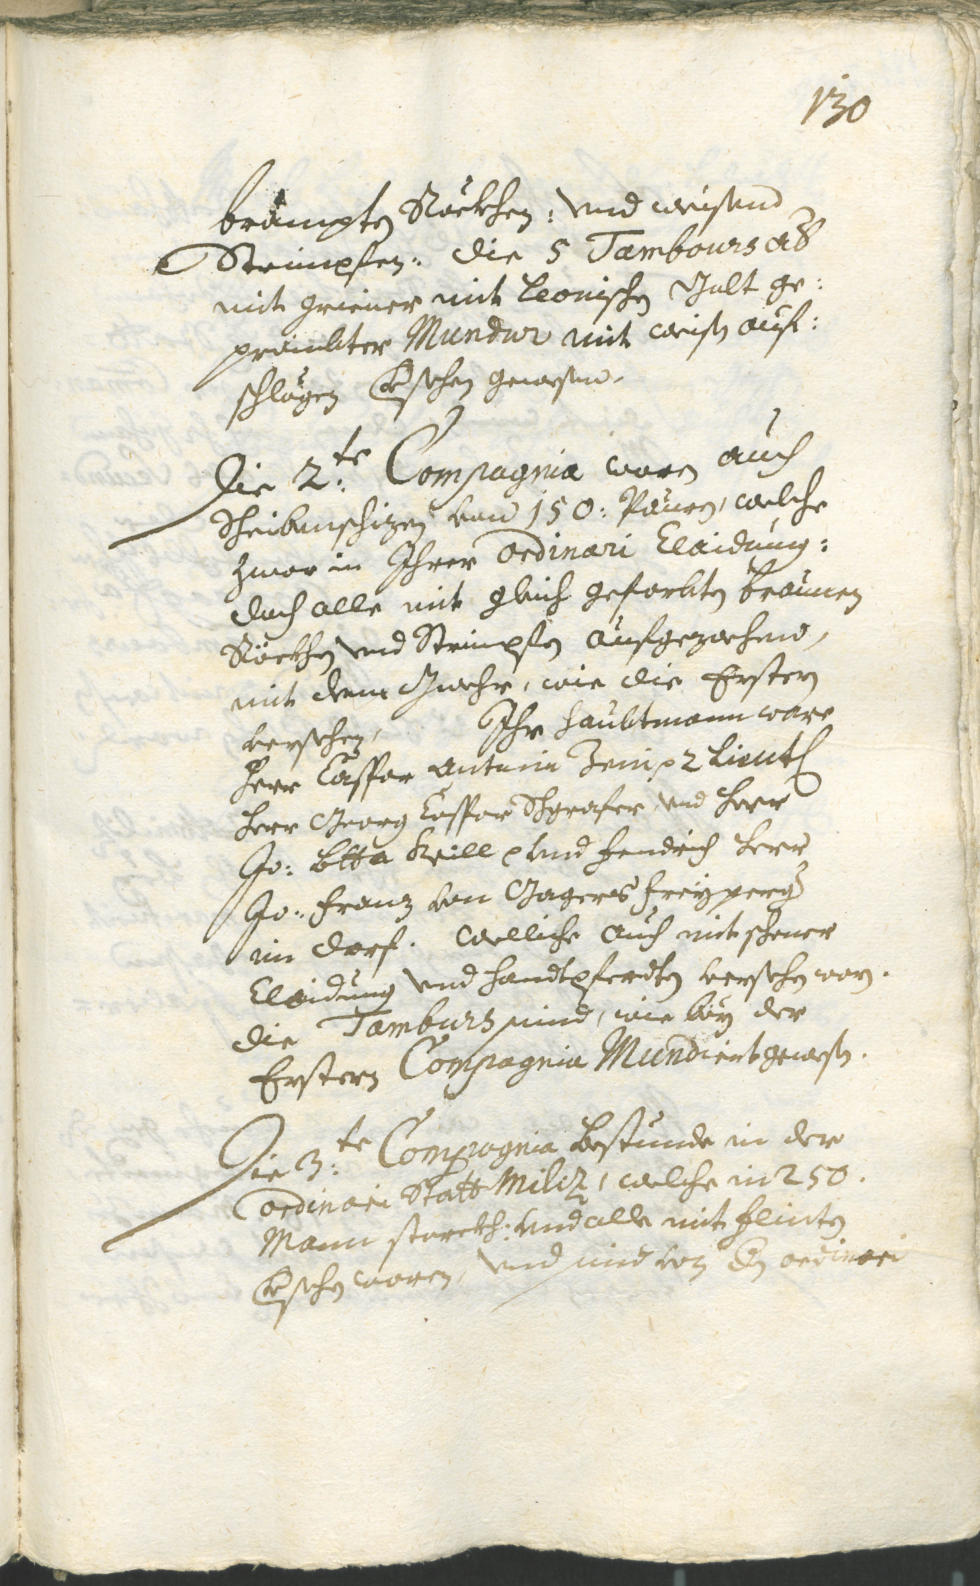 130
brämpten Röckhen: und weisend
Strimpfen. Die 5 Tambours aber
mit griener mit Leonischen Galt ge:
prämbter Mundur mit weisen auf:
schlägen versehen gewesen.
Die 2.te Compagnia waren auch
Scheibenschizen von 150: Pauren, welche
zwar in Ihrer ordinari Claidung:
doch alle mit gleich gefarbten braunen
Röckhen und Strimpfen aufgezochen,
mit dem Gwehr, wie die Ersten
versehen, Ihr Haubtmann ware
Herr Casspar Antoni 2 Lieut
Herr Georg Casspar Schgrafer und Herr
Jo: Btta Krill und Fendrich Herr
Jo: Franz von Gagers Freyperg
im Dorf. Welliche auch mit schener
Claidung und Handtpferdten versehen warn.
Die Tamburs sind, wie bey der
Ersten Compagnia Mundiert gewesen.
Die 3.te Compagnia bestunde in der
ordinari Statt Miliz, welche in 250.
Mann starckh: und alle mit Flinten
versehen waren, und sind von den ordinari